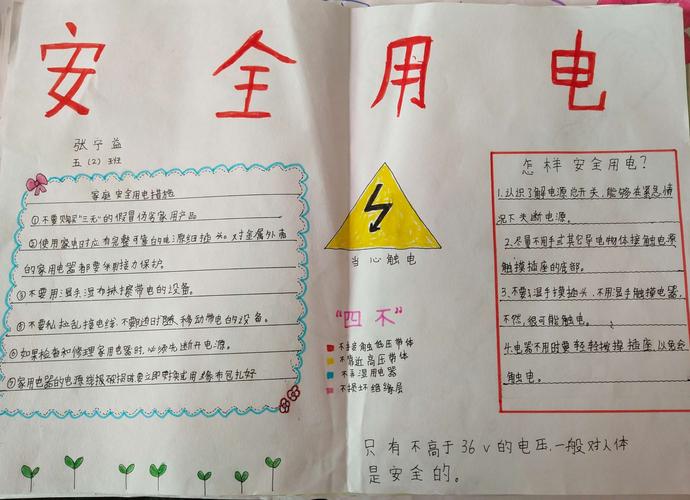 安全用电
张宁益
五(2)班
家庭安全用电措施
①不要购买"三无"的假冒伪劣家用产品
②使用家电时应有完整可靠的电源线插头。对金属外壳
的家用电器都要采用接力保护。
③不要用湿手湿布擦带电的设备。
不要私拉乱接电线,不要随时移动带电的设备。
检查和修理家用电器时,必须先断开电源。
家用电器的电源线破损时要立即更换或用绝缘布包扎好
当心触电
"四不"
不接触低压带体
不靠近高压带体
不弄湿用电器
不损坏绝缘层
只有不高于36v的电压,一般对人体
是安全的。
怎样安全用电?
1.认识了解电源总开关,能够在紧急情
况下关断电源。
2.尽量不用手或其它导电物体接触电源
触摸插座的底部。
3.不要湿手摸插头,不用湿手触摸电器,
不然,很可能触电。
4.电器不用时要轻轻拔掉插座,以免会
触电。